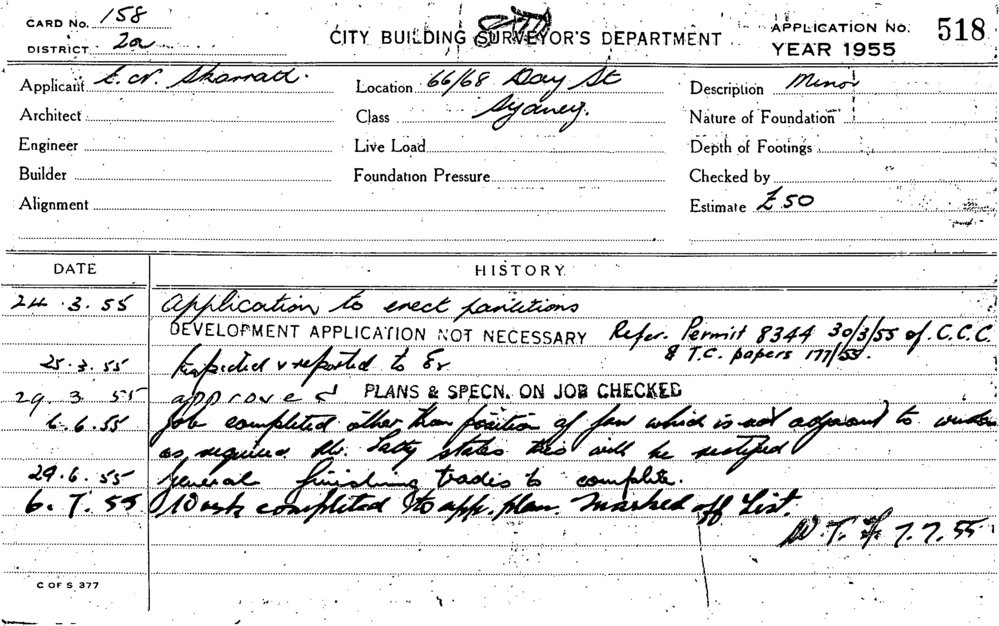 CARD No. 158
DISTRICT 2a
CITY BUILDING SURVEYOR'S DEPARTMENT
APPLICATION No. 518
YEAR 1955
Applicant E. W. Sharratt.
Location 66/68 Day St
Sydney.
Description Minor
Architect
Class
Nature of Foundation
Engineer
Live Load
Depth of Footings
Builder
Foundation Pressure
Checked by
Alignment
Estimate £50
DATE HISTORY
24.3.55 Application to erect partitions
DEVELOPMENT APPLICATION NOT NECESSARY Refer. Permit 8344 30/3/55 of C.C.C.
& T.C. papers 177/55.
25.3.55 Inspected & reported to Er
29.3.55 approved PLANS & SPECN. ON JOB CHECKED
6.6.55 Job completed other than position of fan which is not adjacent to window
as required. Mr. states this will be rectified
29.6.55 General finishing trades to complete.
6.7.55 Work completed to app. plan. Marked off List.
W.T.F. 7.7.55
C OF S 377